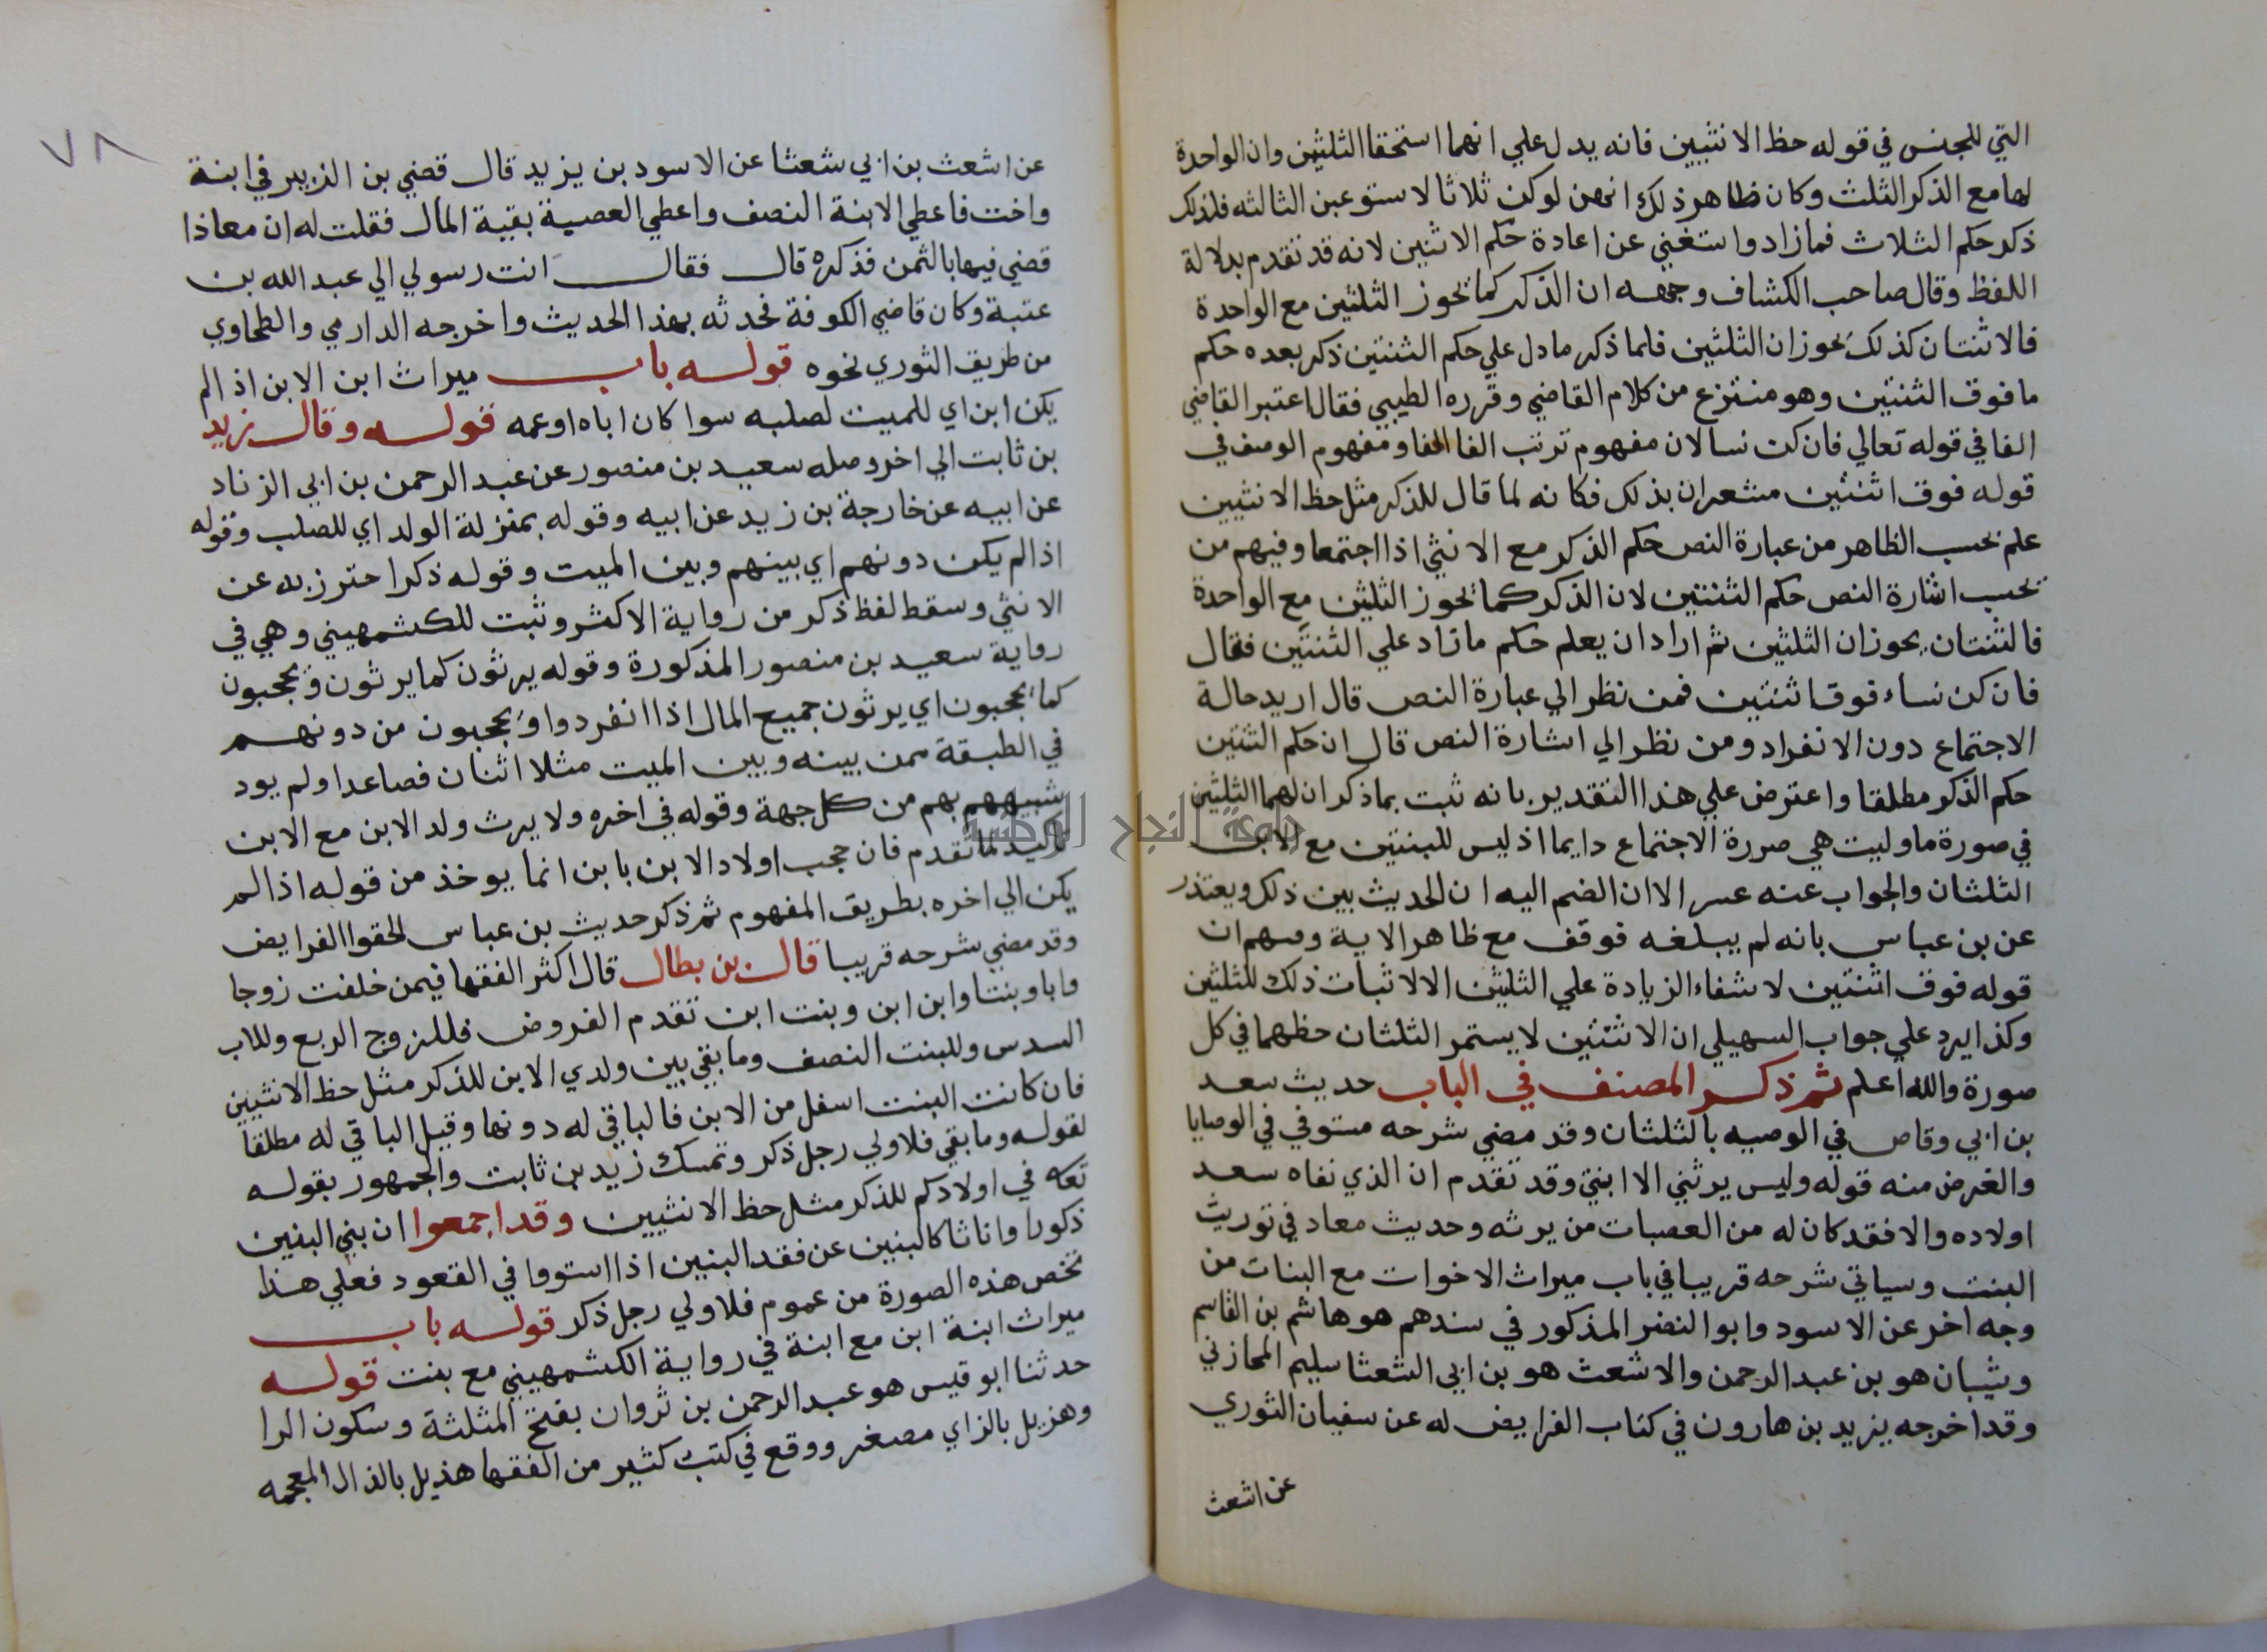 التي للجنس في قوله حظ الانثيين فانه يدل علي انهما استحقا الثلثين وان الواحدة
لها مع الذكر الثلث وكان ظاهر ذلك انهن لو كن ثلاثا لاستوعبن الثالثه فلذلك
ذكر حكم الثلاث فما زاد واستغني عن اعادة حكم الاثنين لانه قد تقدم بدلالة
اللفظ وقال صاحب الكشاف وجهه ان الذكر كما يحوز الثلثين مع الواحدة
فالاثنتان كذلك يحوزان الثلثين فلما ذكر ما دل علي حكم الثنتين ذكر بعده حكم
ما فوق الثنتين وهو منتزع من كلام القاضي وقرره الطيبي فقال اعتبر القاضي
الفا في قوله تعالي فان كن نسا لان مفهوم ترتب الفا ومفهوم الوصف في
قوله فوق اثنتين مشعران بذلك فكانه لما قال للذكر مثل حظ الانثيين
علم بحسب الظاهر من عبارة النص حكم الذكر مع الانثي اذا اجتمعا وفيهم من
بحسب اشارة النص حكم الثنتين لان الذكر كما يحوز الثلثين مع الواحدة
فالثنتان يحوزان الثلثين ثم اراد ان يعلم حكم ما زاد علي الثنتين فقال
فان كن نساء فوق اثنتين فمن نظر الي عبارة النص قال اريد حالة
الاجتماع دون الانفراد ومن نظر الي اشارة النص قال ان حكم الثنتين
حكم الذكر مطلقا واعترض علي هذا التقدير بانه ثبت بما ذكر ان لهما الثلثين
في صورة ما وليت هي صورة الاجتماع دايما اذ ليس للبنتين مع الابن
الثلثان والجواب عنه عسر الا ان الضم اليه ان الحديث بين ذلك ويعتذر
عن بن عباس بانه لم يبلغه فوقف مع ظاهر الاية وفهم ان
قوله فوق اثنتين لاشفاء الزيادة علي الثلثين الا لاثبات ذلك للثلثين
وكذا يرد علي جواب السهيلي ان الاثنتين لا يستمر الثلثان حظهما في كل
صورة والله اعلم ثم ذكر المصنف في الباب حديث سعد
بن ابي وقاص في الوصيه بالثلثان وقد مضي شرحه مستوفي في الوصايا
والغرض منه قوله وليس يرثني الا ابنتي وقد تقدم ان الذي نفاه سعد
اولاده والا فقد كان له من العصبات من يرثه وحديث معاد في توريث
البنت وسياتي شرحه قريبا في باب ميراث الاخوات مع البنات من
وجه اخر عن الاسود وابو النضر المذكور في سندهم هو هاشم بن القاسم
وشيبان هو بن عبد الرحمن والاشعث هو بن ابي الشعثا سليم المحاربي
وقد اخرجه يزيد بن هارون في كتاب الفرايض له عن سفيان الثوري
عن اشعث
٧٨
عن اشعث بن ابي شعثا عن الاسود بن يزيد قال قضي بن الزبير في ابنة
واخت فاعطي الابنة النصف واعطي العصبة بقية المال فقلت له ان معاذا
قضي فيها بالثمن فذكره قال فقال انت رسولي الي عبد الله بن
عتبة وكان قاضي الكوفة فحدثه بهذا الحديث واخرجه الدارمي والطحاوي
من طريق الثوري نحوه قوله باب ميراث ابن الابن اذا لم
يكن ابن اي للميت لصلبه سوا كان اباه او عمه قوله وقال زيد
بن ثابت الي اخره وصله سعيد بن منصور عن عبد الرحمن بن ابي الزناد
عن ابيه عن خارجة بن زيد عن ابيه وقوله بمنزلة الولد اي للصلب وقوله
اذا لم يكن دونهم اي بينهم وبين الميت وقوله ذكر احترز به عن
الانثي وسقط لفظ ذكر من رواية الاكثر وثبت للكشمهيني وهي في
رواية سعيد بن منصور المذكورة وقوله يرثون كما يرثون ويحجبون
كما يحجبون اي يرثون جميع المال اذا انفردوا ويحجبون من دونهم
في الطبقة ممن بينه وبين الميت مثلا اثنان فصاعدا ولم يود
شبيههم بهم من كل جهة وقوله في اخره ولا يرث ولد الابن مع الابن
تاكيد لما تقدم فان حجب اولاد الابن بابن انما يوخذ من قوله اذا لم
يكن الي اخره بطريق المفهوم ثم ذكر حديث بن عباس الحقوا الفرايض
وقد مضي شرحه قريبا قال بن بطال قال اكثر الفقها فيمن خلفت زوجا
وابا وبنتا وابن ابن وبنت ابن تقدم الفروض فللزوج الربع وللاب
السدس وللبنت النصف وما بقي بين ولدي الابن للذكر مثل حظ الانثيين
فان كانت البنت اسفل من الابن فالباقي له دونها وقيل الباقي له مطلقا
لقوله وما بقي فلاولي رجل ذكر وتمسك زيد بن ثابت والجمهور بقوله
تعه في اولادكم للذكر مثل حظ الانثيين وقد اجمعوا ان بني البنين
ذكورا واناثا كالبنين عن فقد البنين اذا استووا في القعود فعلي هذا
تخص هذه الصورة من عموم فلاولي رجل ذكر قوله باب
ميراث ابنة ابن مع ابنة في رواية الكشمهيني مع بنت قوله
حدثنا ابو قيس هو عبد الرحمن بن ثروان بفتح المثلثة وسكون الرا
وهزيل بالزاي مصغر ووقع في كتب كثير من الفقها هذيل بالذال المعجمه
جامعة النجاح الوطنية